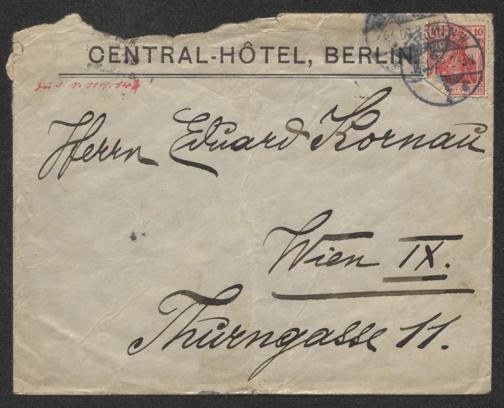 CENTRAL-HÔTEL, BERLIN.
10
Herrn Eduard Kornau
Wien IX.
Thurngasse 11.